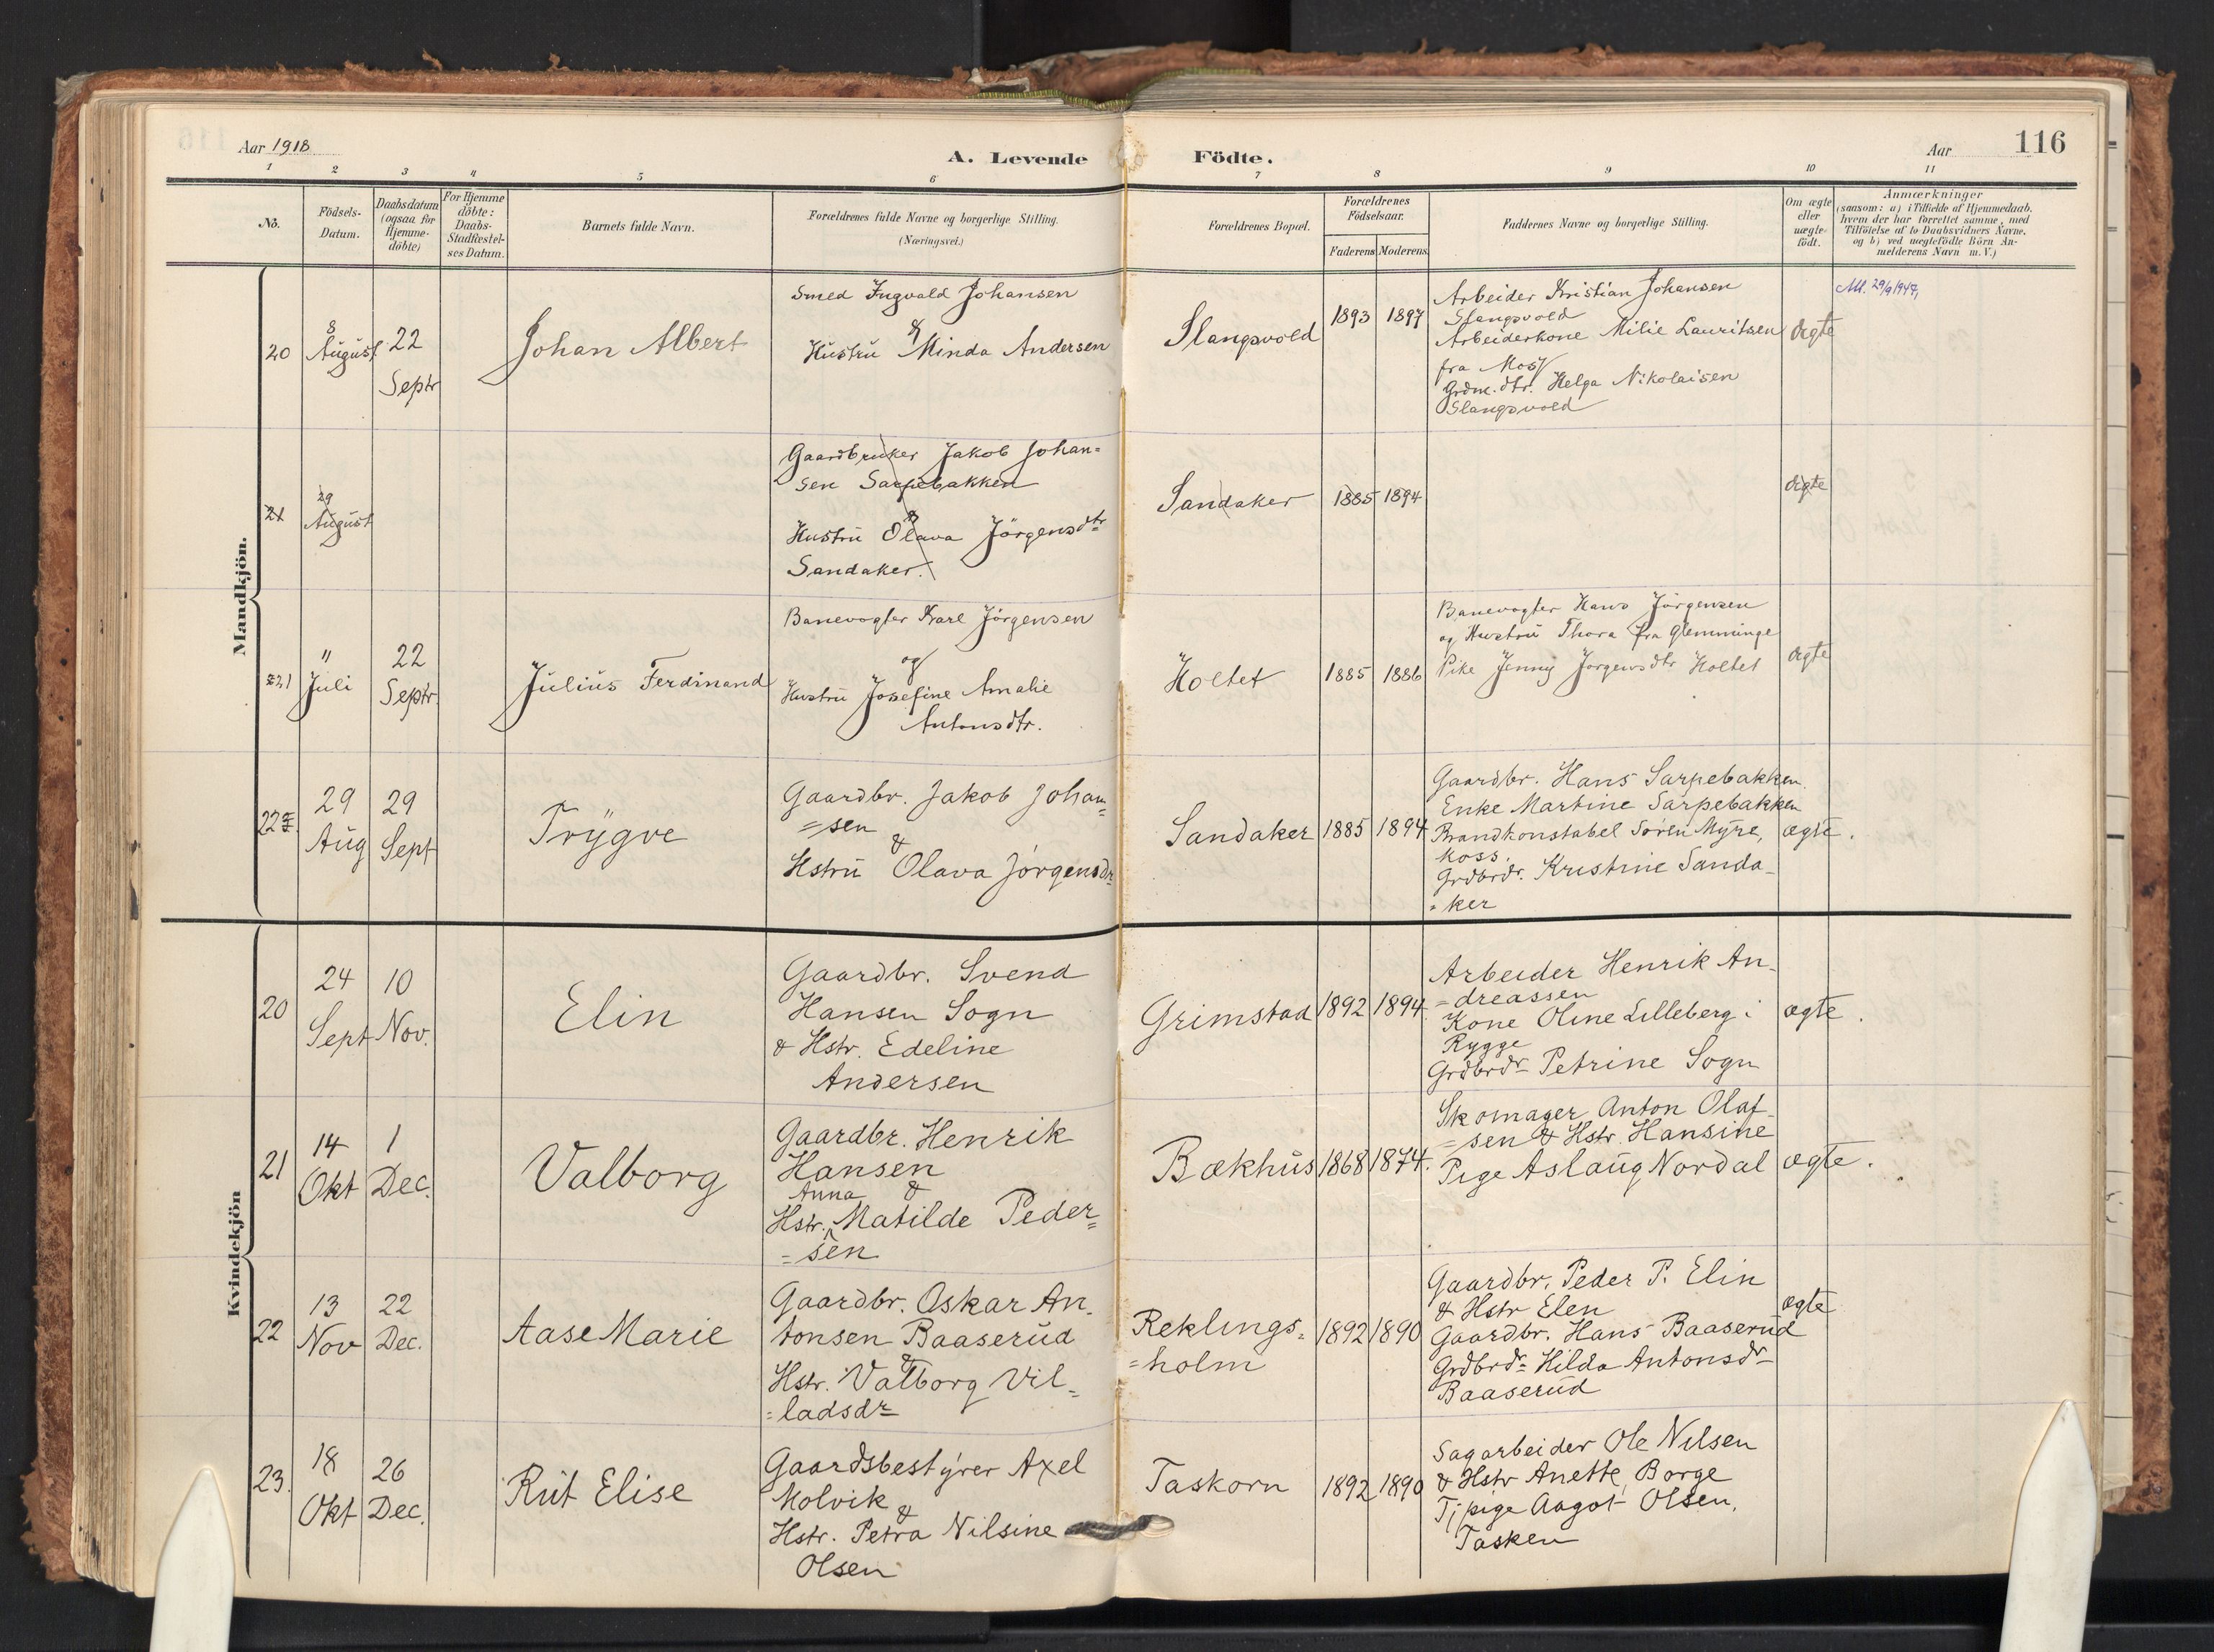 Aar 1918
A. Levende Födte.
Aar
116
1 2 3 4 5 6 7 8 9 10 11
No.
Födsels-Datum.
Daabsdatum (ogsaa for Hjemme-döbte)
For Hjemme döbte: Daabs-Stadfæstel-ses Datum.
Barnets fulde Navn.
Forældrenes fulde Navne og borgerlige Stilling.
(Næringsvei.)
Forældrenes Bopæl.
Forældrenes Födselsaar.
Faderens Moderens
Faddernes Navne og borgerlige Stilling.
Om ægte eller uægte-födt.
Anmærkninger
(saasom: a) i Tilfælde af Hjemmedaab.
hvem der har forrettet samme, med
Tilföielse af to Daabsvidners Navne.
og b) ved uægtefödte Börn An-
melderens Navn m. V.)
Mandkjön.
20
8 August
22 Septr
Johan Albert
Smed Ingvald Johansen
&
Hustru Minda Andersen
Slangsvold
1893 1897
Arbeider Kristian Johansen
Slangsvold
Arbeiderkone Milie Lauritsen
fra Moss
Grdm.dtr. Helga Nikolaisen
Slangsvold
ægte
29/9 1947,
21
29 August
Gaardbruker Jakob Johan=
sen Sarpebakken
&
Hustru Olava Jörgensdtr
Sandaker.
Sandaker
1885 1894
ægte
21
" Juli
22 Septr.
Julius Ferdinand
Banevogter Karl Jörgensen
og
Hustru Josefine Amalie
Antonsdtr.
Holtet
1885 1886
Banevogter Hans Jörgensen
og Hustru Thora fra Glemminge
Pike Jenny Jörgensdtr Holtet
ægte
22
29 Aug
29 Sept
Trygve
Gaardbr. Jakob Johan=
=sen
&
Hstru Olava Jörgensdr
Sandaker
1885 1894
Gaardbr. Hans Sarpebakken
Enke Martine Sarpebakken
Brandkonstabel Sören Myre,
Moss.
Grdbrdr. Kristine Sanda-
=ker
ægte.
Kvindekjön
20
24 Sept
10 Nov.
Elin
Gaardbr. Svend
Hansen Sogn
& Hstr. Edeline
Andersen
Grimstad
1892 1894
Arbeider Henrik An-
=dreassen
Kone Oline Lilleberg i
Rygge
Grdbrdr Petrine Sogn
ægte.
21
14 Okt
1 Dec.
Valborg
Gaardbr. Henrik
Hansen
Anna &
Hstr. Matilde Peder=
=sen
Bækhus
1868 1874.
Skomager Anton Olaf-
=sen & Hstr. Hansine
Pige Aslaug Nordal
ægte.
22
13 Nov
22 Dec.
Aase Marie
Gaardbr. Oskar An-
tonsen Baaserud
&
Hstr. Valborg Vil=
=ladsdr
Reklings=
=holm
1892 1890
Gaardbr. Peder P. Elin
& Hstr Elen
Gaardbr. Hans Baaserud
Grdbrdr Hilda Antonsdr
Baaserud
ægte
23.
18 Okt
26 Dec.
Rut Elise
Gaardsbestyrer Axel
Molvik
&
Hstr. Petra Nilsine
Olsen
Taskorn
1892 1890
Sagarbeider Ole Nilsen
& Hstr Anette, Borge
Tj pige Aagot Olsen,
Tasken